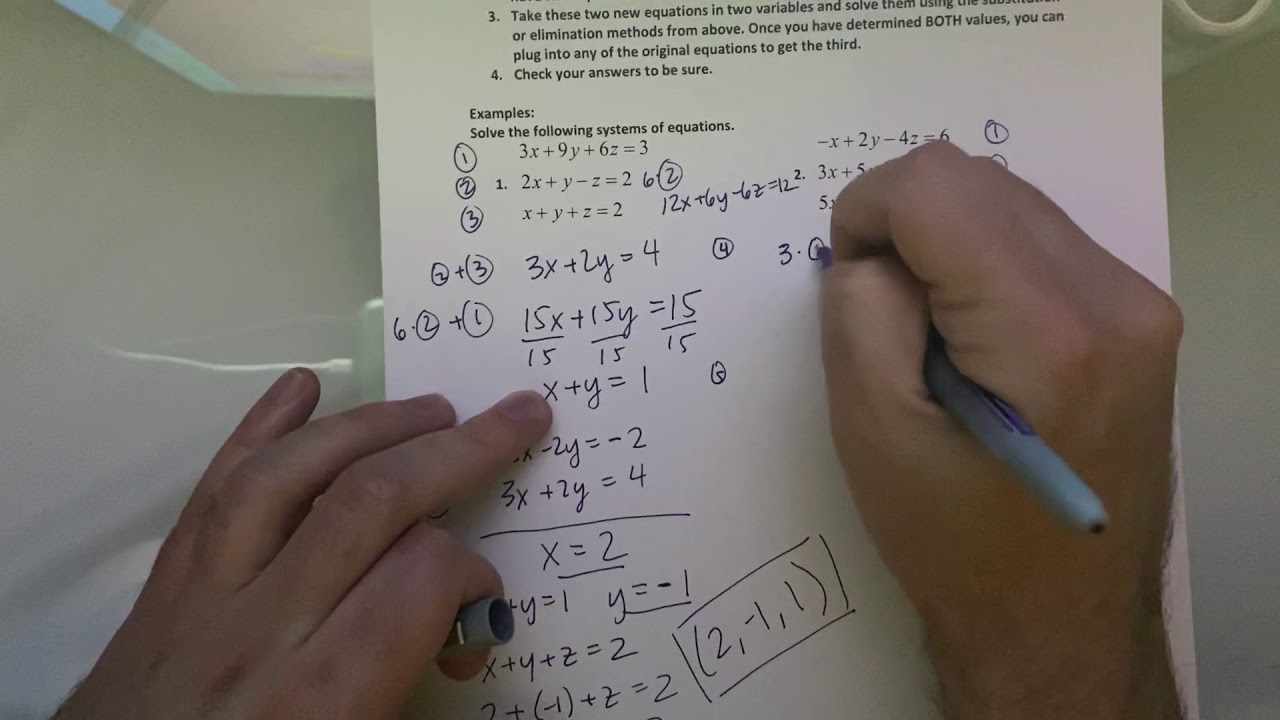 3. Take these two new equations in two variables and solve them using the
or elimination methods from above. Once you have determined BOTH values, you can
plug into any of the original equations to get the third.
4. Check your answers to be sure.
Examples:
Solve the following systems of equations.
① 3x+9y+6z=3
② 1. 2x+y−z=2 6②
③ x+y+z=2
12x+6y-6z=12
−x+2y−4z=6 ①
2. 3x+5
5
②+③ 3x+2y=4 ④
3·
6·② +① 15x+15y=15
15 15 15
x+y=1
-2y=-2
3x+2y=4
x=2
+y=1 y=-1
x+y+z=2
2+(-1)+z=2
(2,-1,1)